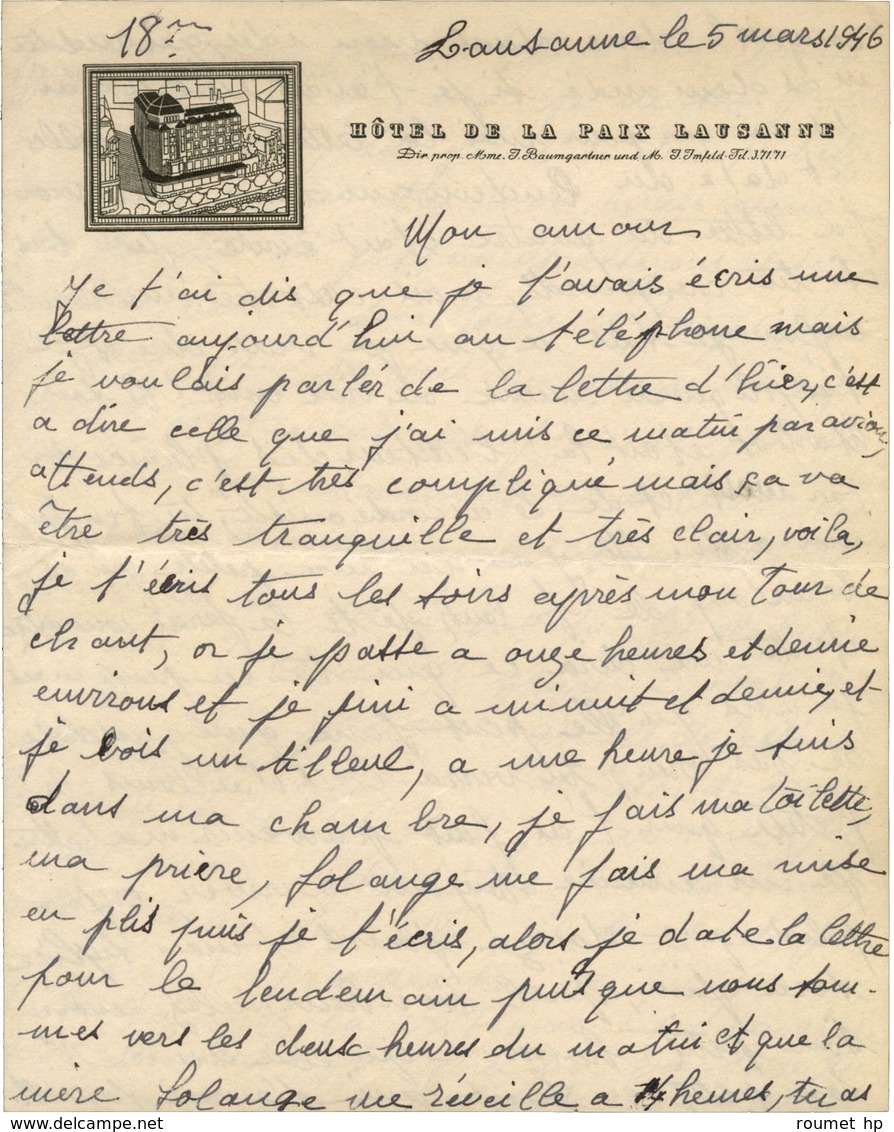 18
Lausanne le 5 mars 1946
HÔTEL DE LA PAIX LAUSANNE
Dir. prop. Mme. J. Baumgartner und M. J. Imfeld - Tél. 3.71.71
Mon amour
Je t'ai dis que je t'avais écris une
lettre aujourd'hui au téléphone mais
je voulais parler de la lettre d'hier, c'est
a dire celle que j'ai mis ce matin par avion,
attends, c'est très compliqué mais ça va
être très tranquille et très clair, voila,
je t'écris tous les soirs après mon tour de
chant, or je passe a onze heures et demie
environs et je fini a minuit et demie, et
je bois un tilleul, a une heure je suis
dans ma chambre, je fais ma toilette,
ma prière, Solange me fais ma mise
en plis puis je t'écris, alors je date la lettre
pour le lendemain puisque nous som-
mes vers les deux heures du matin et que la
mère Solange me réveille a 4 heures, tu as
roumet hp